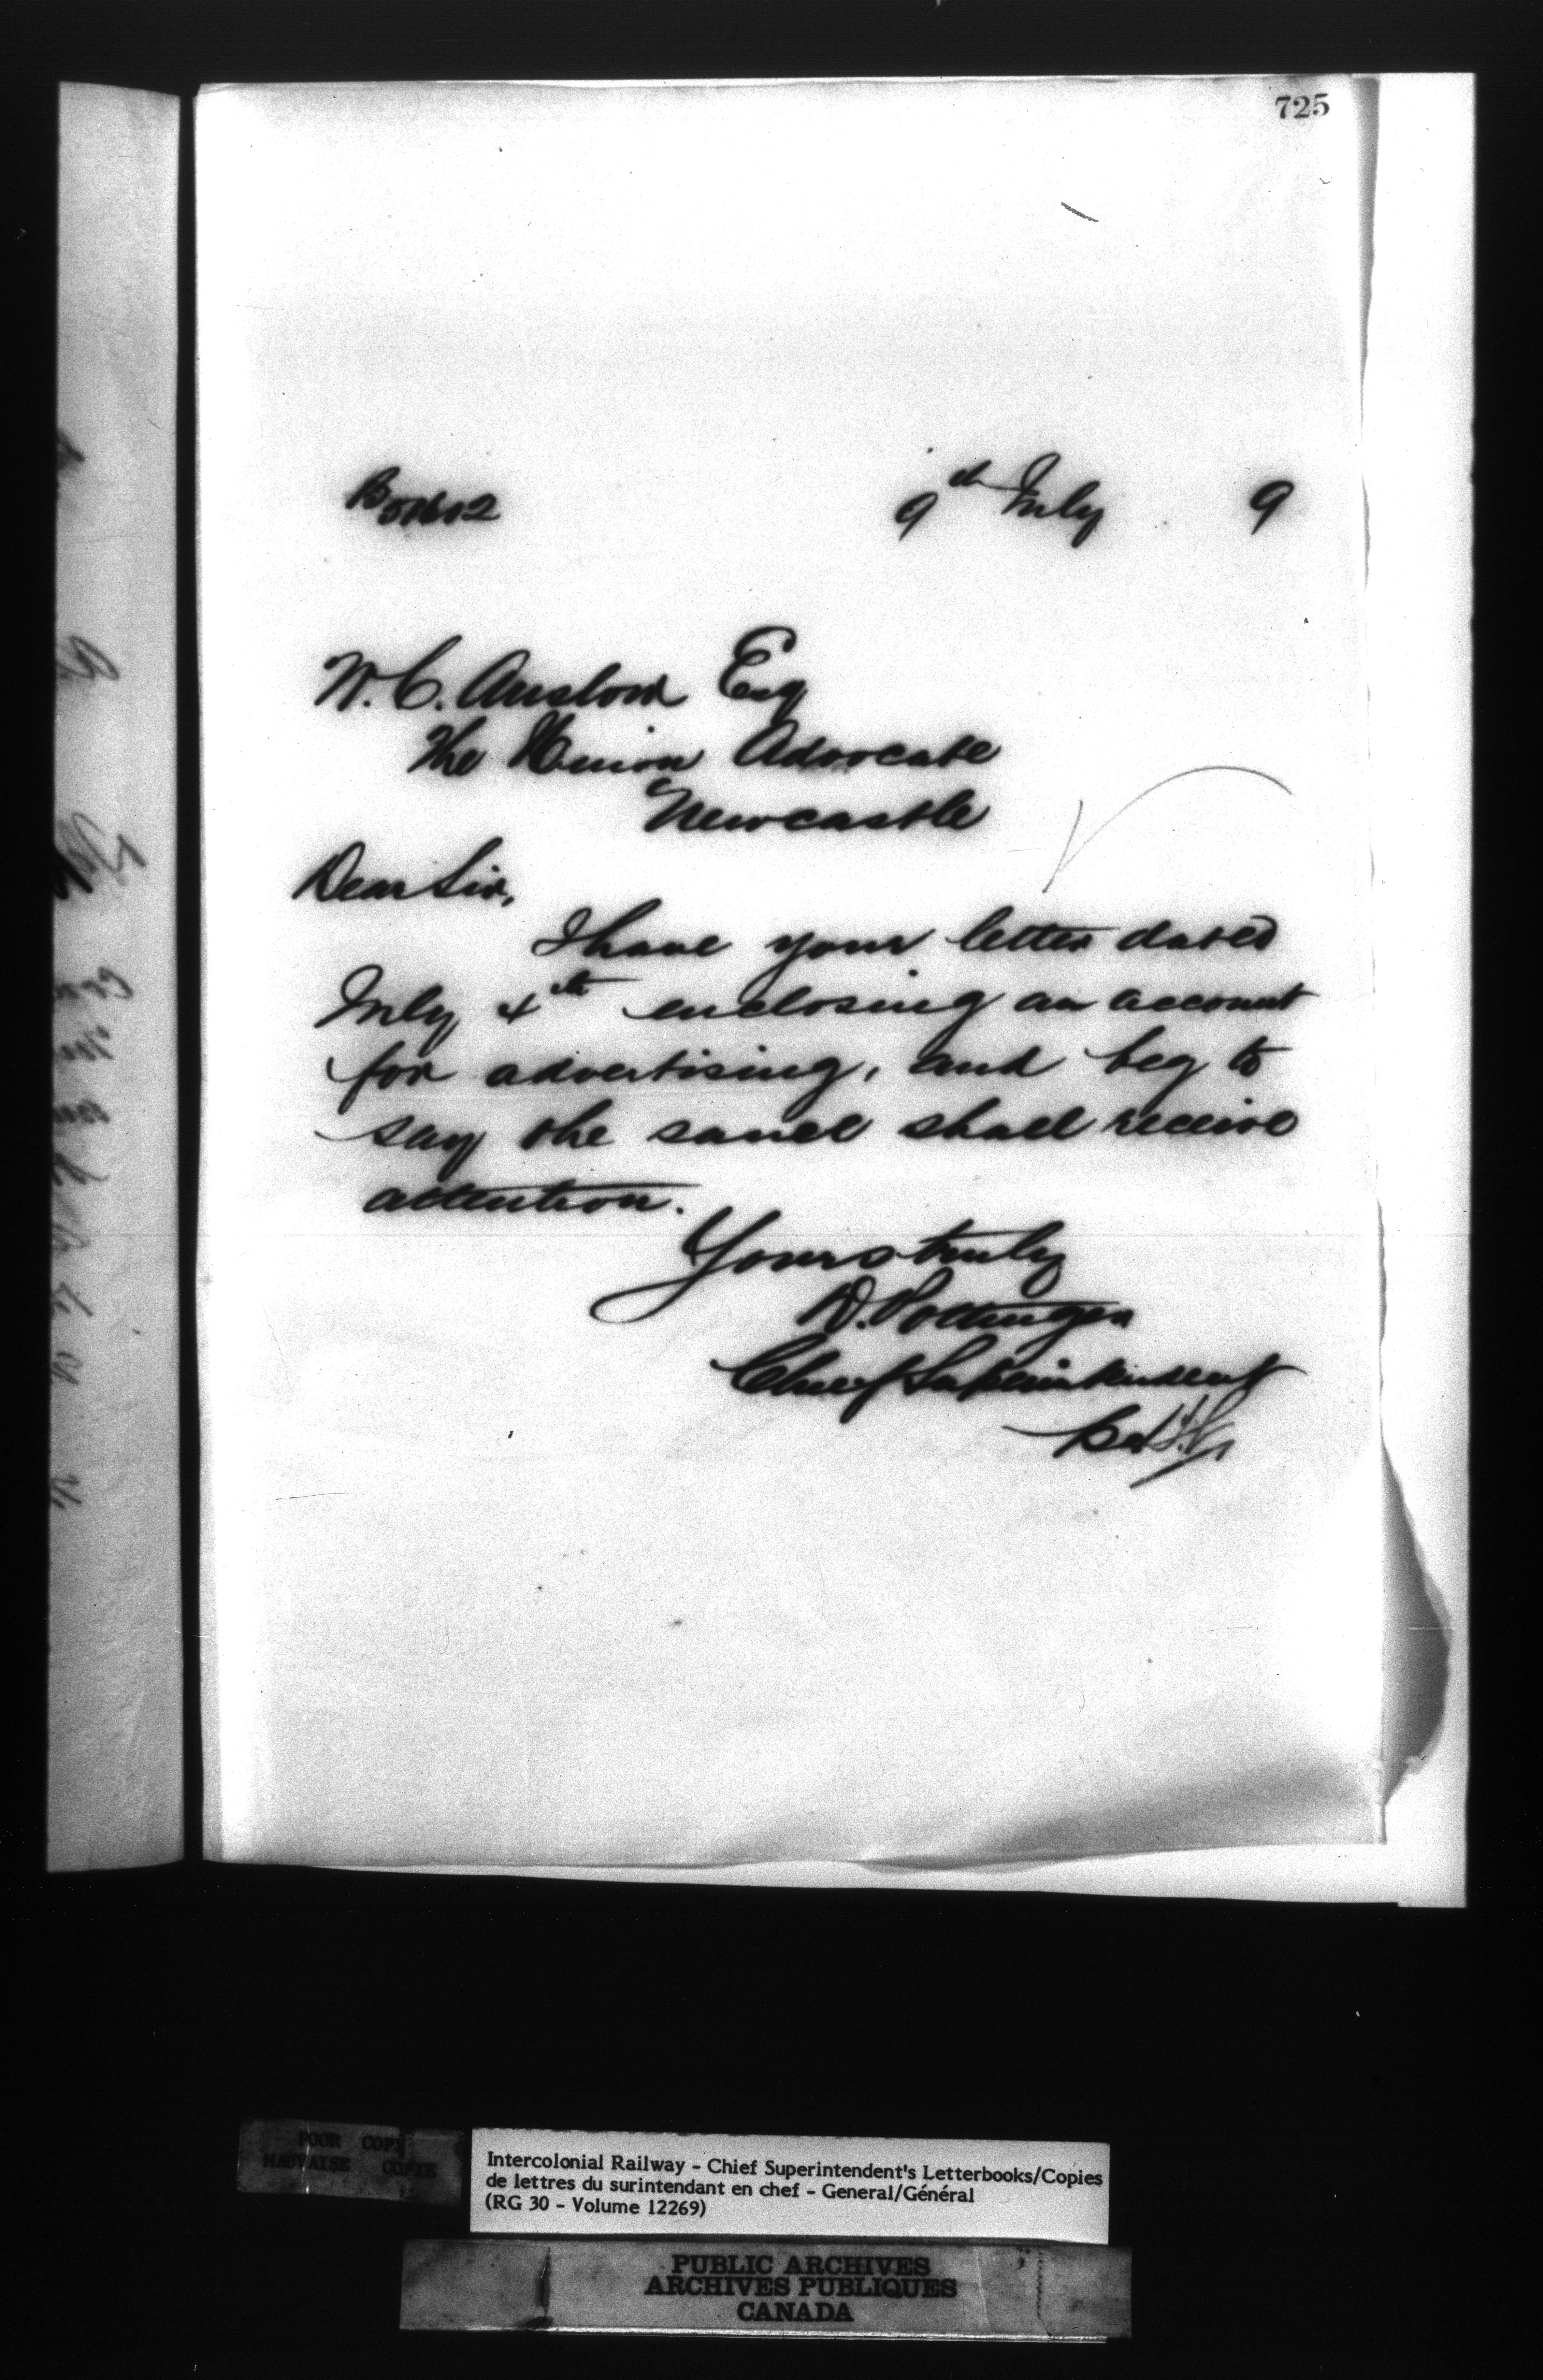 725
9th July 9
W. C. Anslow Esq
The Union Advocate
Newcastle
Dear Sir,
I have your letter dated
July 4th enclosing an account
for advertising, and beg to
say the same shall receive
attention.
Yours truly
D. Pottinger
Chief Superintendent
POOR COPY
MAUVAISE COPIE
Intercolonial Railway - Chief Superintendent's Letterbooks/Copies
de lettres du surintendant en chef - General/Général
(RG 30 - Volume 12269)
PUBLIC ARCHIVES
ARCHIVES PUBLIQUES
CANADA